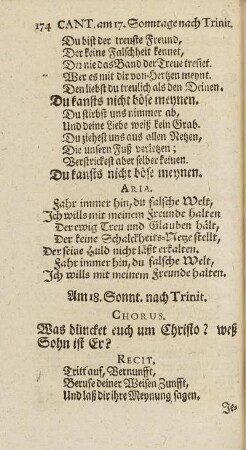 174 CANT. am 17. Sonntage nach Trinit.
Du bist der treuste Freund,
Der keine Falschheit kennet,
Der nie das Band der Treue treñet.
Wer es mit dir von Hertzen meynt.
Den liebst du treulich als den Deinen.
Du kanſts nicht böse meynen.
Du stirbst uns nimmer ab,
Und deine Liebe weiß kein Grab.
Du ziehest uns aus allen Netzen,
Die unsern Fuß verletzen;
Verstrickest aber selber keinen.
Du kanſts nicht böse meynen.
ARIA.
Fahr immer hin, du falsche Welt,
Ich wills mit meinem Freunde halten
Der ewig Treu und Glauben hält,
Der keine Schalckheits-Netze stellt,
Der seine Huld nicht läßt erkalten.
Fahr immer hin, du falsche Welt,
Ich wills mit meinem Freunde halten.
Am 18. Sonnt. nach Trinit.
CHORUS.
Was düncket euch um Christo? weß
Sohn ist Er?
RECIT.
Tritt auf, Vernunfft,
Beruffe deiner Weisen Zunfft,
Und laß dir ihre Meynung sagen.